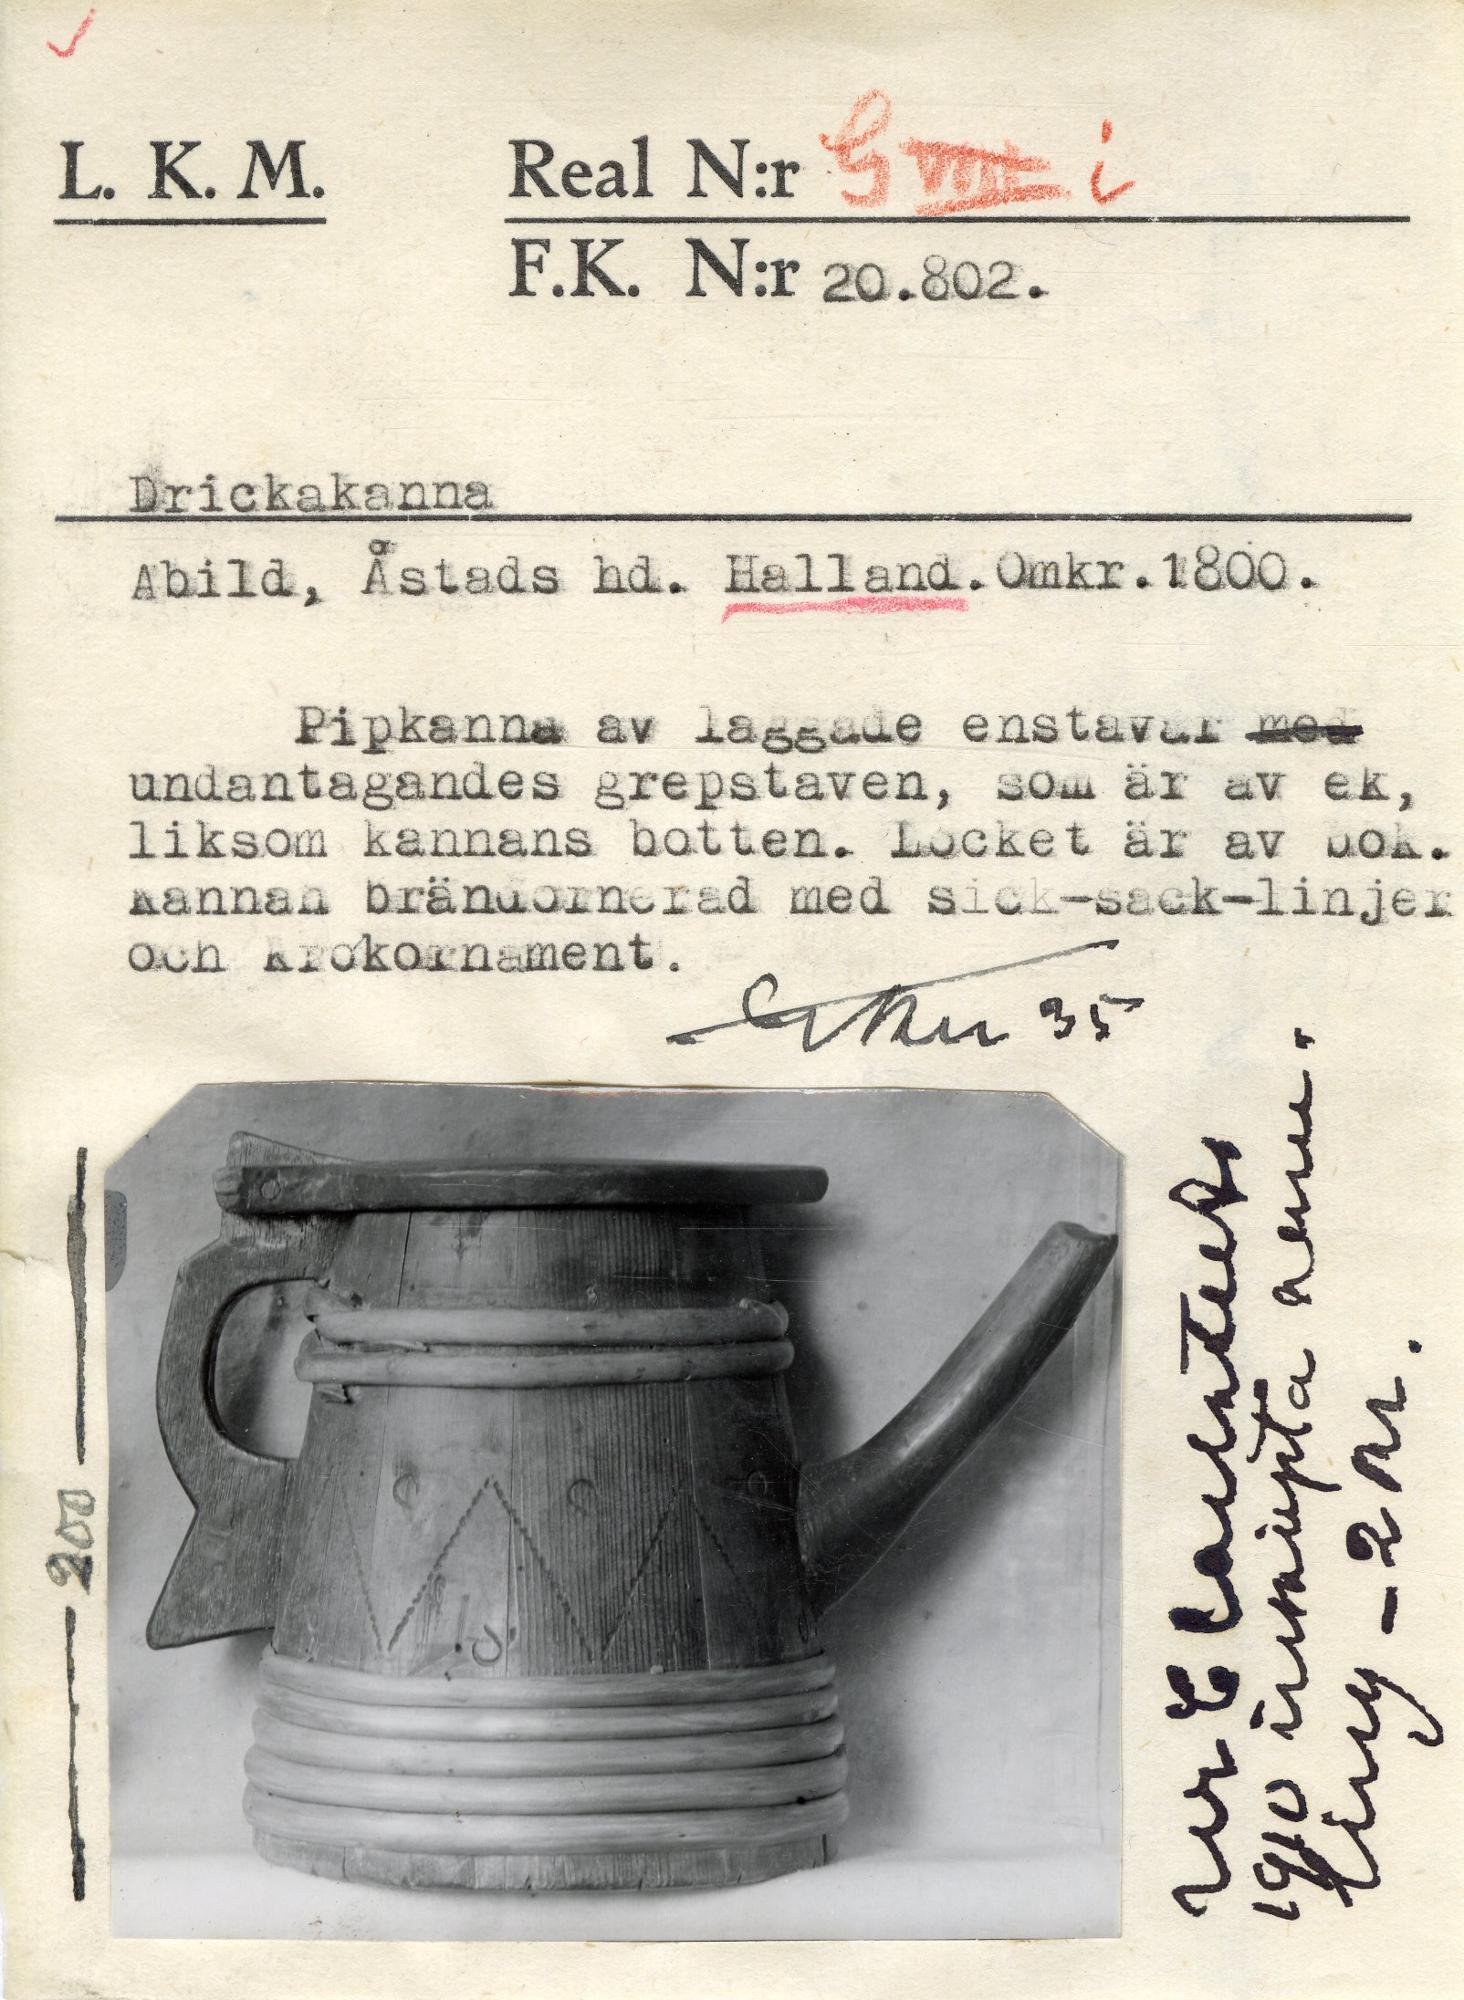 L. K. M.
Real N:r G VIII i
F.K. N:r 20.802.
Drickakanna
Abild, Åstads hd. Halland. Omkr. 1800.
Pipkanna av laggade enstavar med
undantagandes grepstaven, som är av ek,
liksom kannans botten. Locket är av bok.
Kannan brändornerad med sick-sack-linjer
och krokornament.
35
200
1910